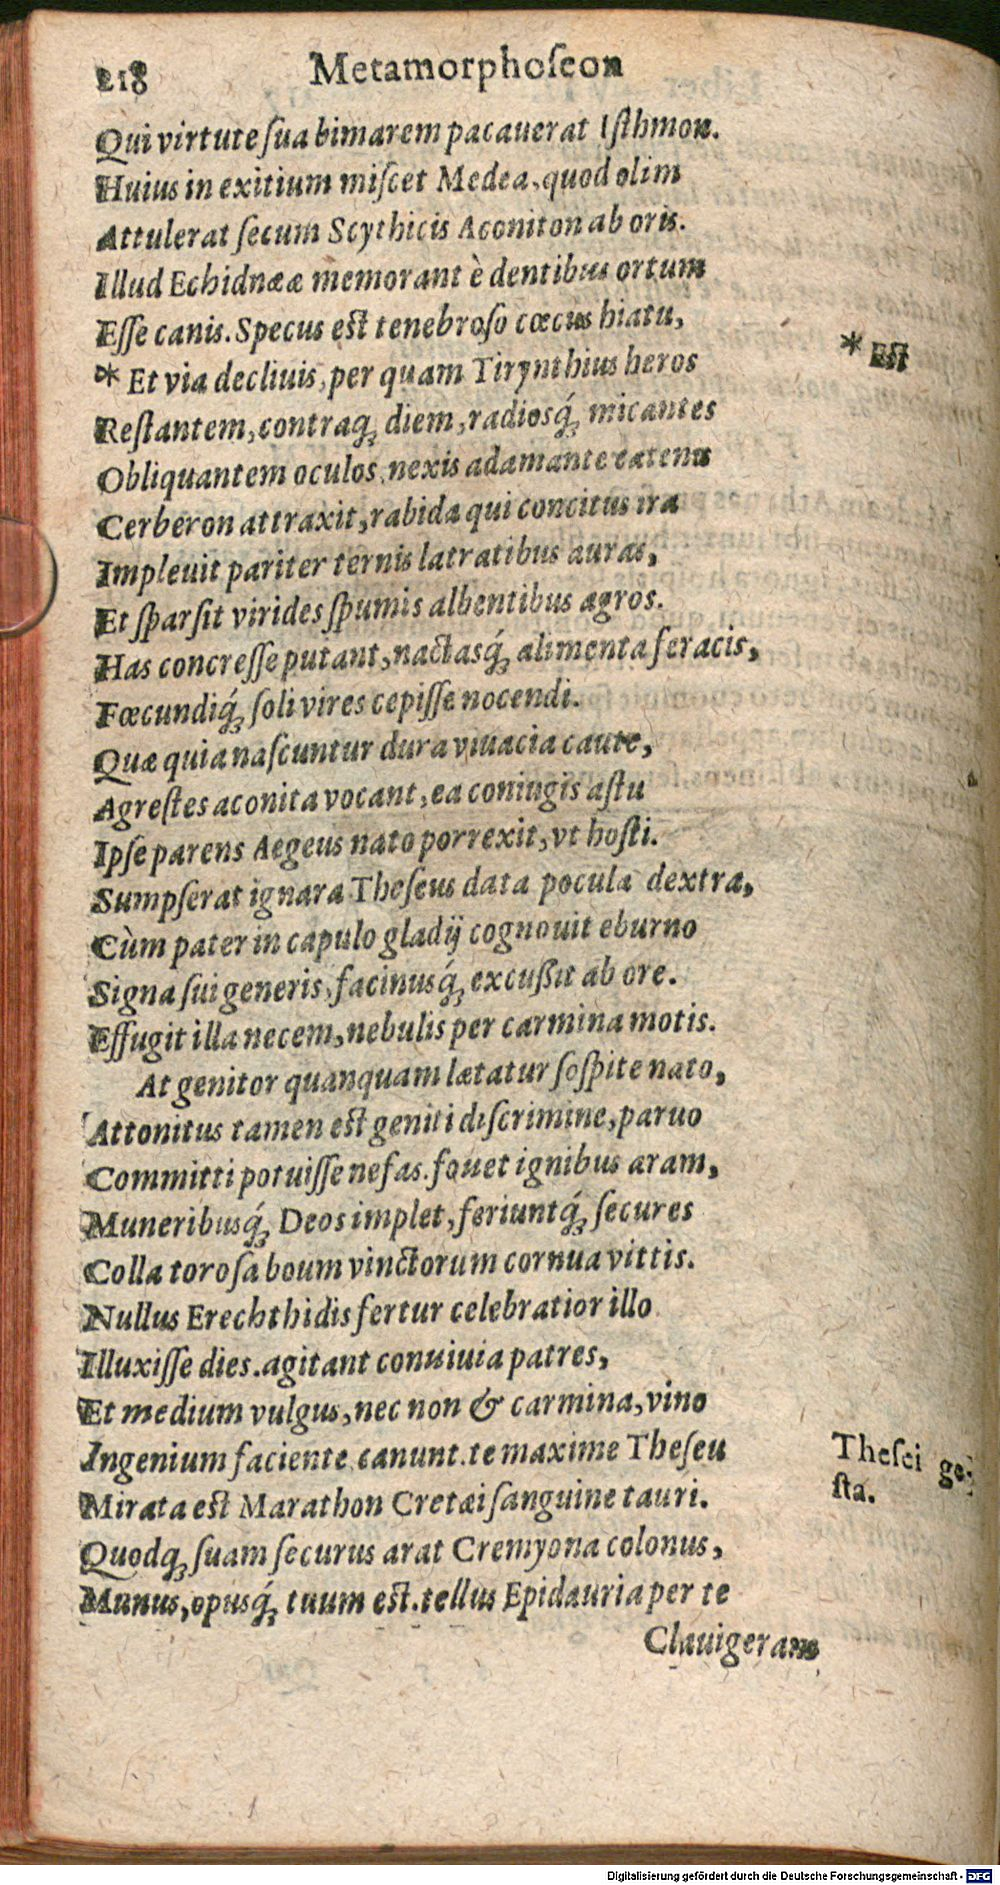 218 Metamorphoſeon
Qui virtute ſua bimarem pacauerat Iſthmon.
Huius in exitium miſcet Medea, quod olim
Attulerat ſecum Scythicis Aconiton ab oris.
Illud Echidnææ memorant è dentibus ortum
Eſſe canis. Specus eſt tenebroſo cœcus hiatu,
* Et via decliuis, per quam Tirynthius heros
* Eſt
Reſtantem, contraq; diem, radiosq́; micantes
Obliquantem oculos, nexis adamante catenis
Cerberon attraxit, rabida qui concitus ira
Impleuit pariter ternis latratibus auras,
Et ſparſit virides ſpumis albentibus agros.
Has concreſſe putant, nactasq́; alimenta feracis,
Fœcundiq́; ſoli vires cepiſſe nocendi.
Quæ quia naſcuntur dura viuacia caute,
Agreſtes aconita vocant, ea coniugis aſtu
Ipſe parens Aegeus nato porrexit, vt hoſti.
Sumpſerat ignara Theſeus data pocula dextra,
Cùm pater in capulo gladij cognouit eburno
Signa ſui generis, facinusq́; excußit ab ore.
Effugit illa necem, nebulis per carmina motis.
At genitor quanquam lætatur ſoſpite nato,
Attonitus tamen eſt geniti diſcrimine, paruo
Committi potuiſſe nefas. fouet ignibus aram,
Muneribusq́; Deos implet, feriuntq́; ſecures
Colla toroſa boum vinctorum cornua vittis.
Nullus Erechthidis fertur celebratior illo
Illuxiſſe dies. agitant conuiuia patres,
Et medium vulgus, nec non & carmina, vino
Ingenium faciente canunt. te maxime Theſeu
Theſei ge-
ſta.
Mirata eſt Marathon Cretæi ſanguine tauri.
Quodq; ſuam ſecurus arat Cremyona colonus,
Munus, opusq́; tuum eſt. tellus Epidauria per te
Clauigeram
Digitalisierung gefördert durch die Deutsche Forschungsgemeinschaft - DFG